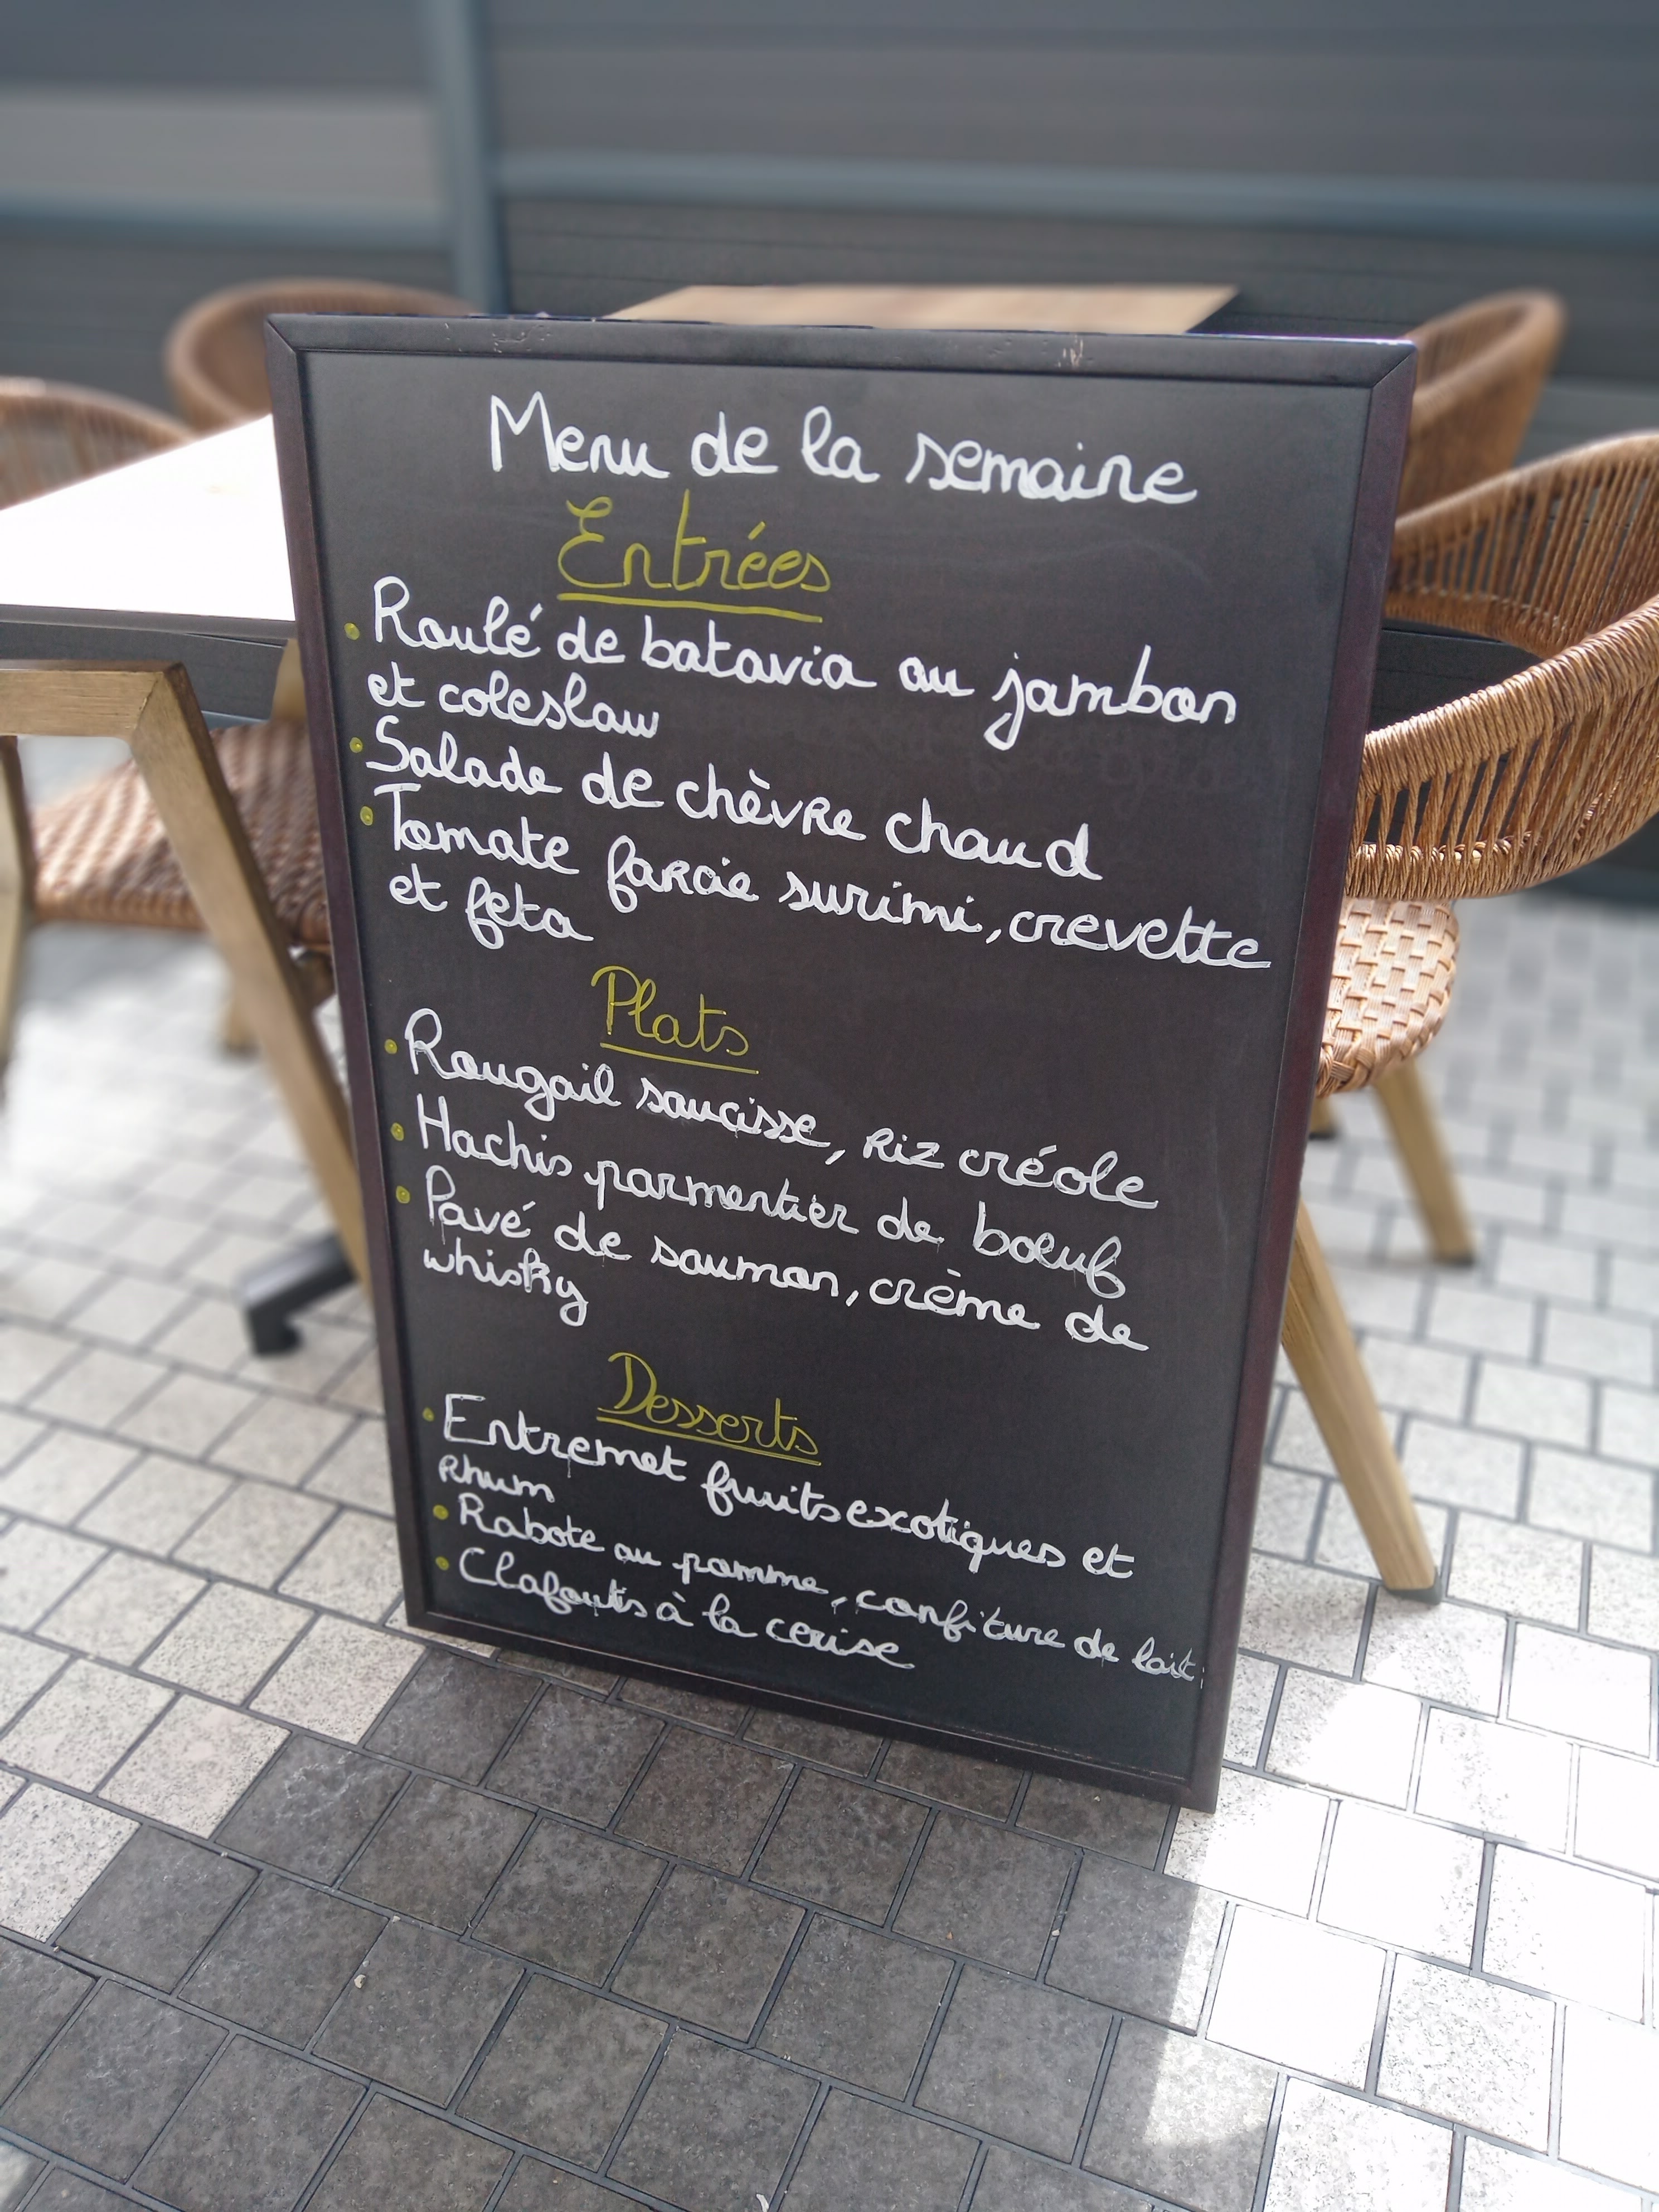 Menu de la semaine
Entrées
• Roulé de batavia au jambon
et coleslaw
• Salade de chèvre chaud
• Tomate farcie surimi, crevette
et feta
Plats
• Rougail saucisse, riz créole
• Hachis parmentier de bœuf
• Pavé de saumon, crème de
whisky
Desserts
• Entremet fruits exotiques et
rhum
• Rabote au pomme, confiture de lait
• Clafoutis à la cerise